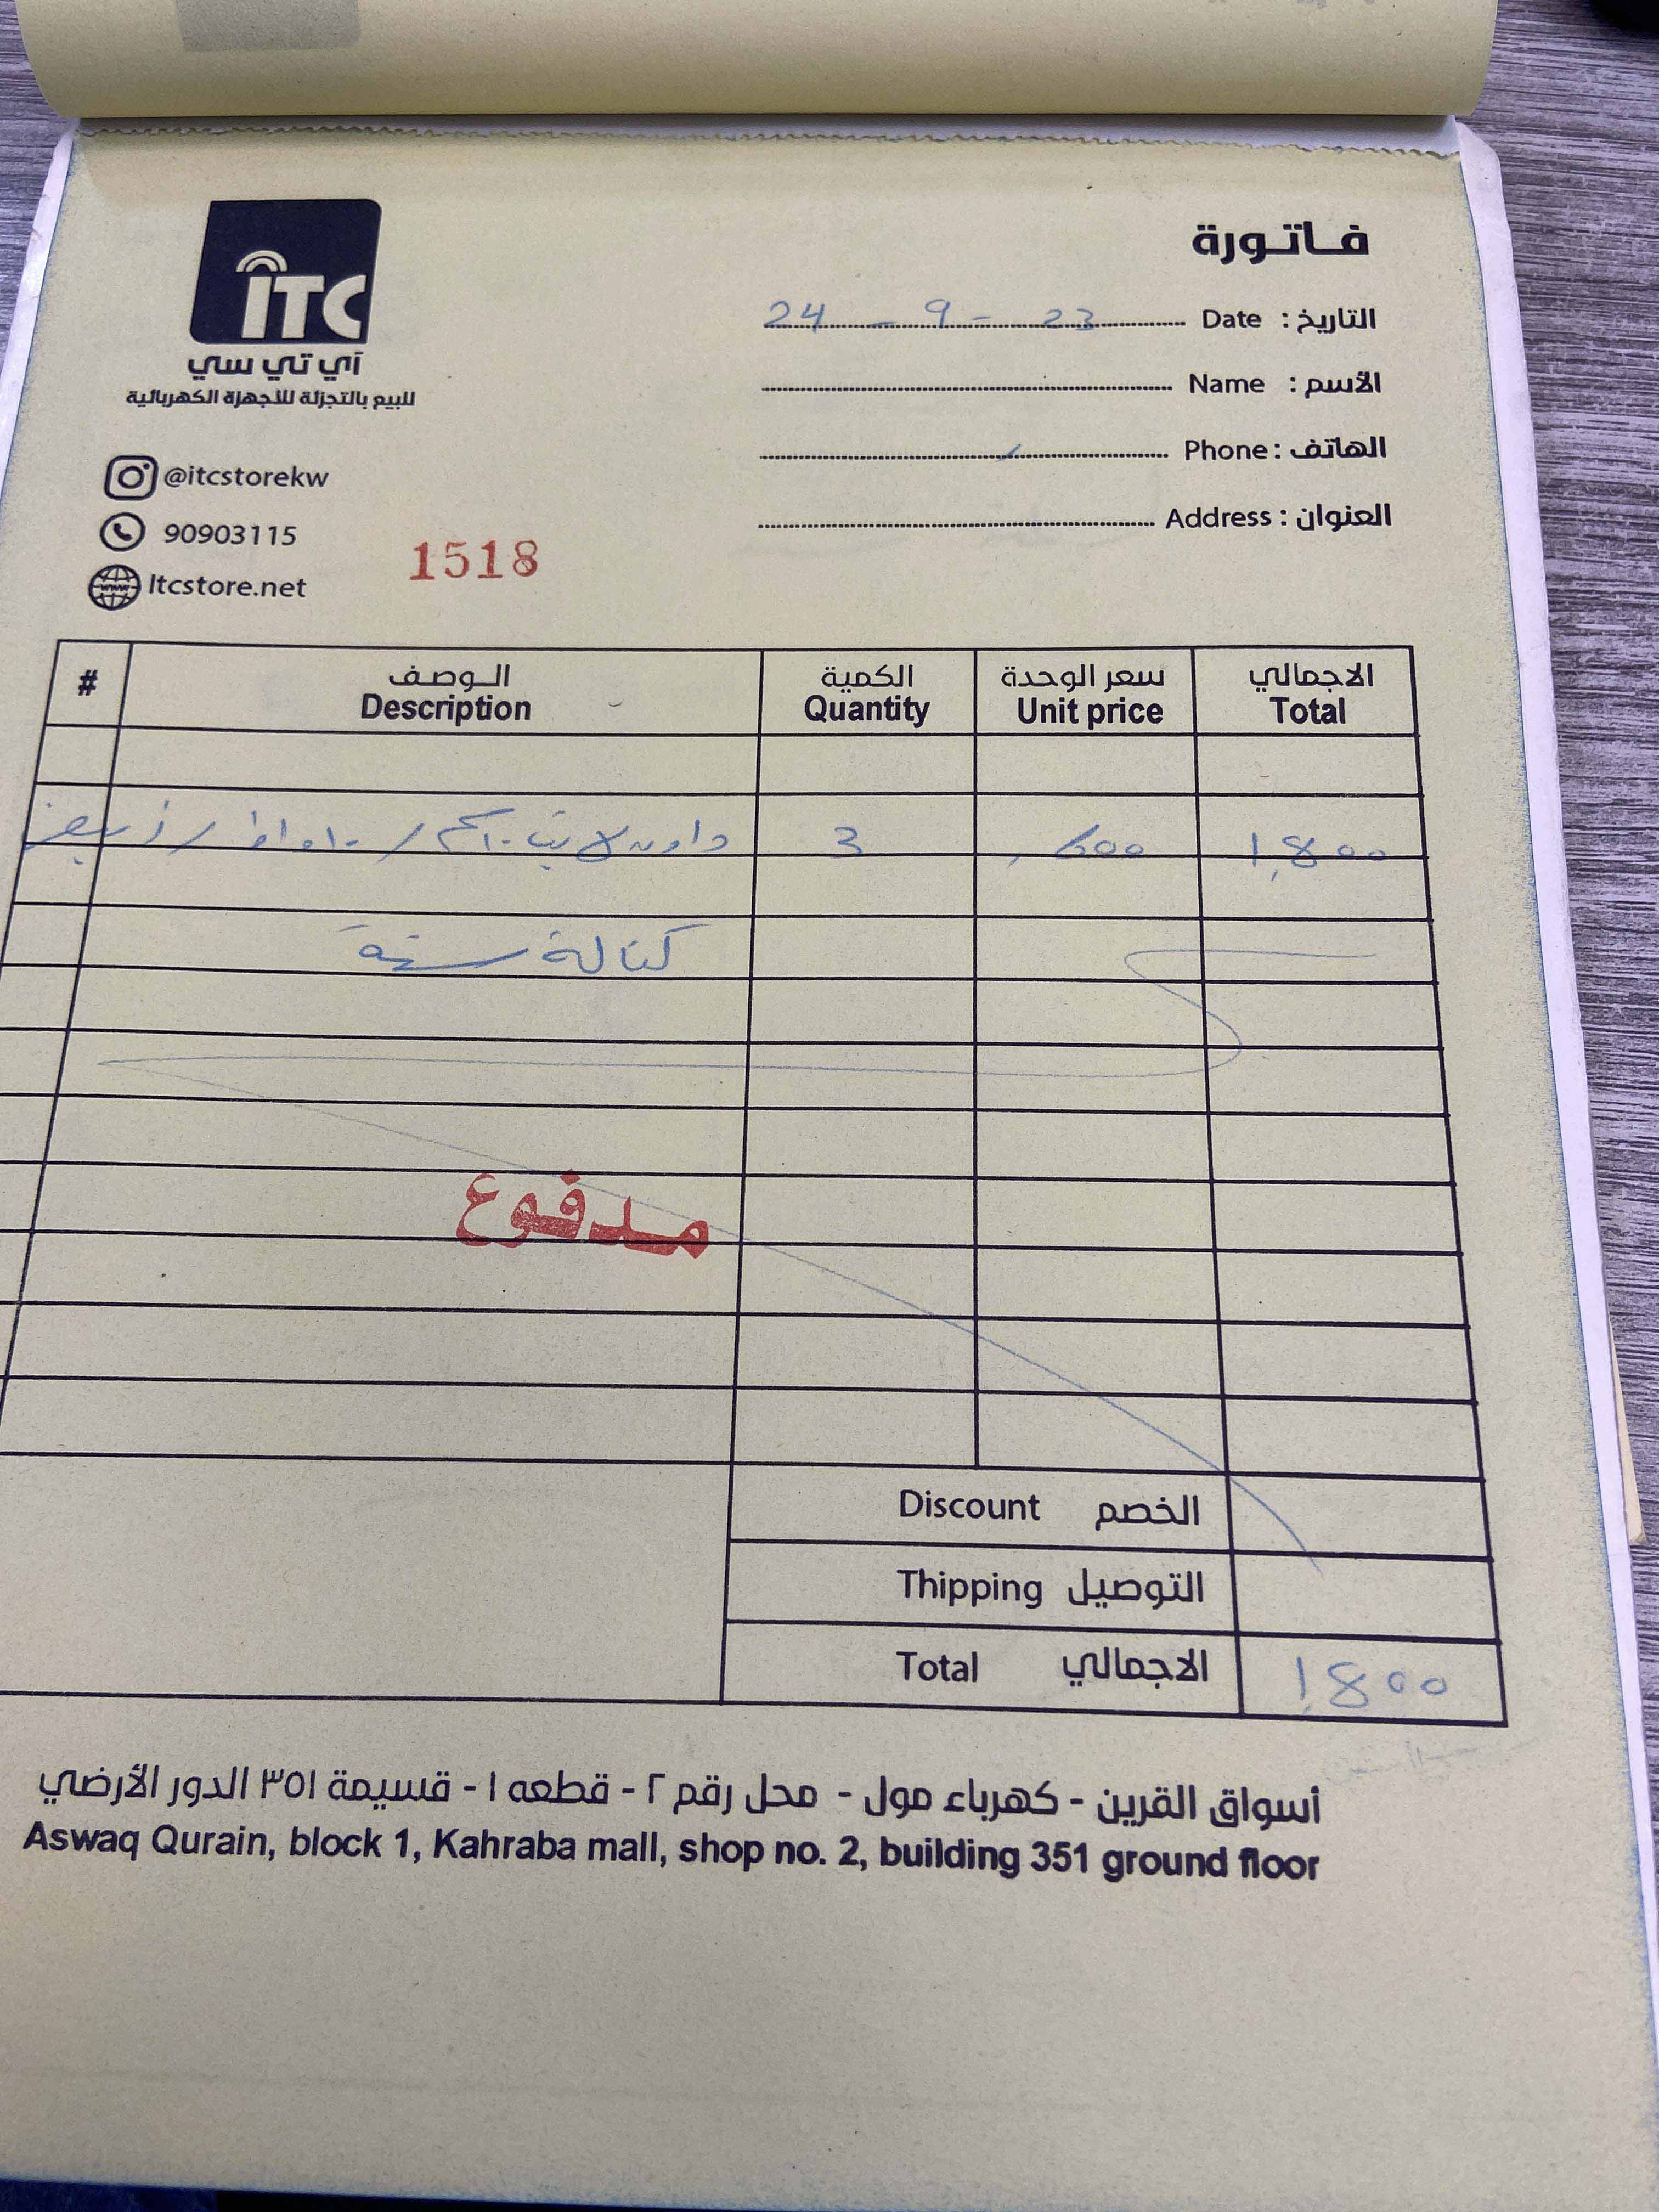 فاتورة
ITC
آي تي سي
للبيع بالتجزئة للأجهزة الكهربائية
التاريخ : Date 24 - 9 - 23
الأسم : Name
الهاتف : Phone
العنوان : Address
@itcstorekw
90903115
Itcstore.net
1518
# الوصف الكمية سعر الوحدة الاجمالي
Description Quantity Unit price Total
داون لايت ١٠سم / ١٠واط / 3 ,600 1,800
كفالة سنة
مدفوع
Discount الخصم
Thipping التوصيل
Total الاجمالي 1,800
أسواق القرين - كهرباء مول - محل رقم ٢ - قطعه ١ - قسيمة ٣٥١ الدور الأرضي
Aswaq Qurain, block 1, Kahraba mall, shop no. 2, building 351 ground floor